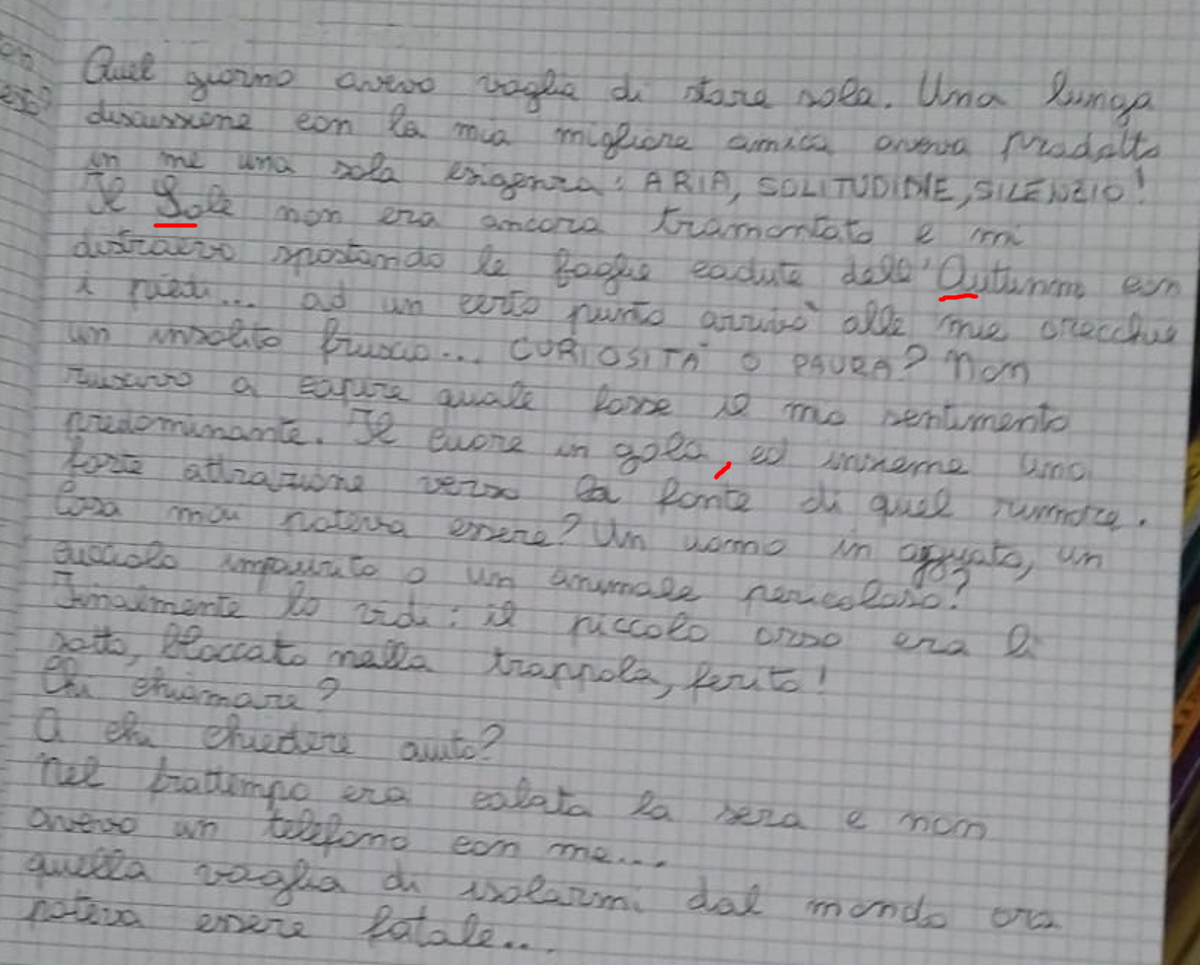 Quel giorno avevo voglia di stare sola. Una lunga
discussione con la mia migliore amica aveva prodotto
in me una sola esigenza: ARIA, SOLITUDINE, SILENZIO!
Il Sole non era ancora tramontato e mi
distraevo spostando le foglie cadute dell'Autunno con
i piedi... ad un certo punto arrivò alle mie orecchie
un insolito fruscio... CURIOSITÀ O PAURA? Non
riuscivo a capire quale fosse il mio sentimento
predominante. Il cuore in gola, ed insieme una
forte attrazione verso la fonte di quel rumore.
Cosa mai poteva essere? Un uomo in agguato, un
cucciolo impaurito o un animale pericoloso?
Finalmente lo vidi: il piccolo orso era lì
sotto, bloccato nella trappola, ferito!
Chi chiamare?
A chi chiedere aiuto?
Nel frattempo era calata la sera e non
avevo un telefono con me....
quella voglia di isolarmi dal mondo ora
poteva essere fatale....